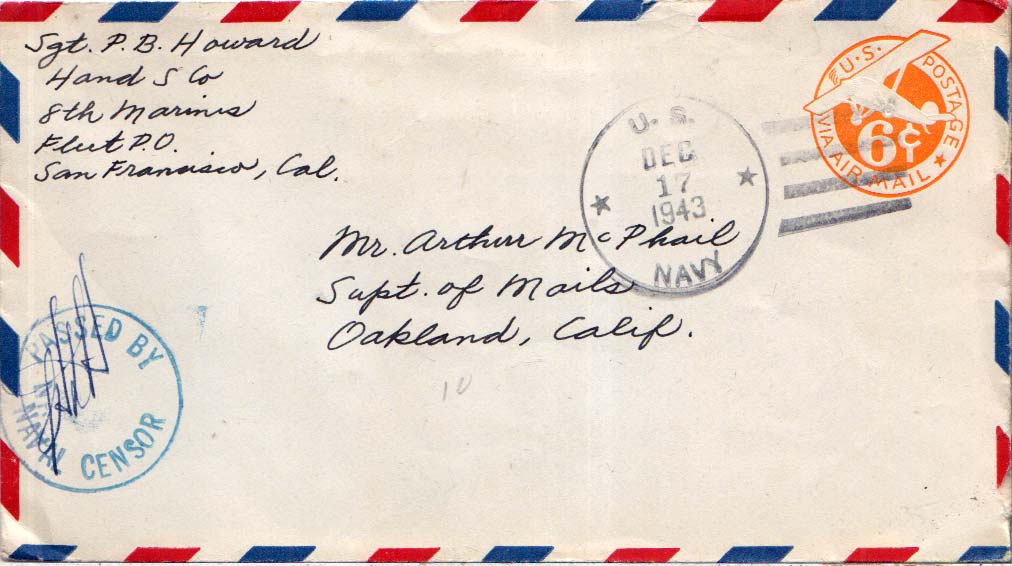 Sgt. P. B. Howard
H and S Co
8th Marines
Fleet P.O.
San Francisco, Cal.
U.S. POSTAGE
6¢
VIA AIR MAIL
U. S.
DEC
17
1943
NAVY
Mr. Arthur McPhail
Supt. of Mails
Oakland, Calif.
PASSED BY
NAVAL CENSOR
10